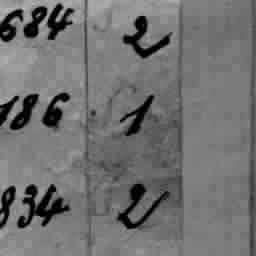 684 2
186 1
834 2